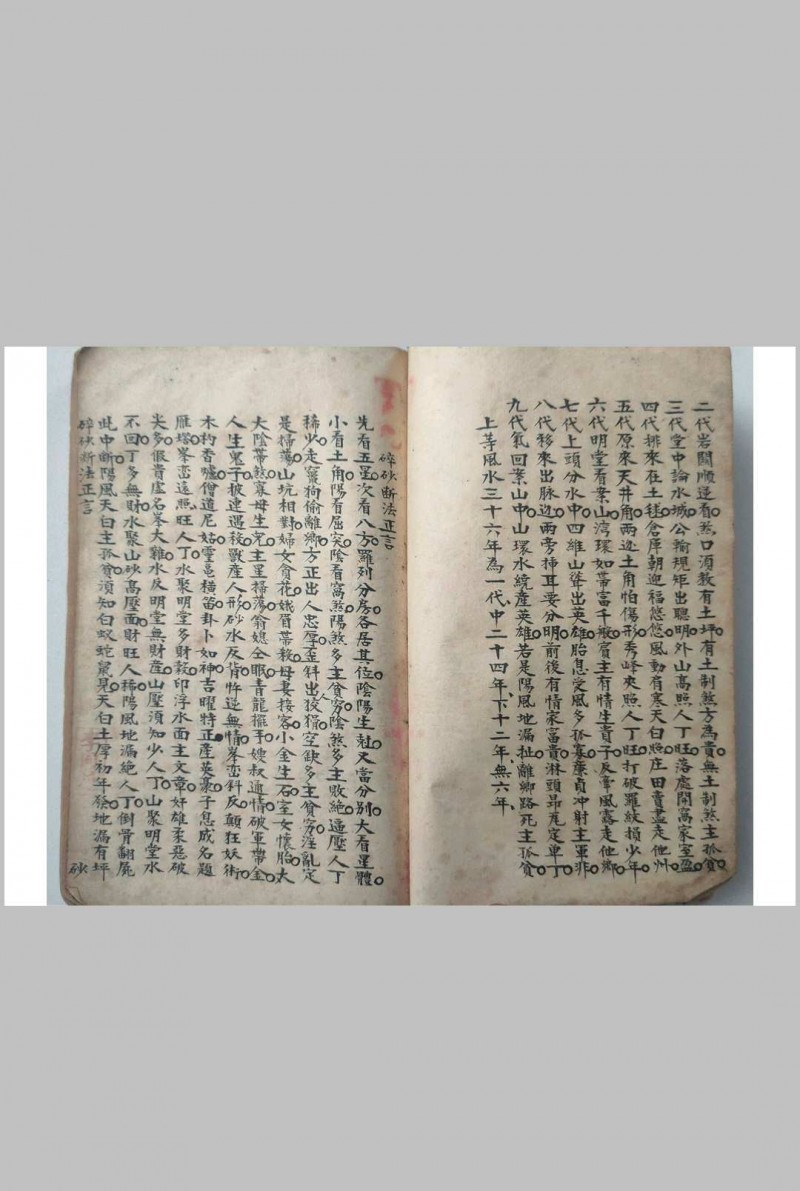 二代岩關順逆看煞口須教有土坪有土制煞方為貴無土制煞主孤貧
三代堂中論水城公輸規矩出聰明外山高照人丁旺落處開窩家室盈
四代排來在土毬倉庫朝迎福悠悠風動肩寒天白照庄田賣盡走他州
五代原來天井角兩边土角怕傷形秀峰夾照人丁旺打破羅紋損少年
六代明堂看案山湾環如帶富千般賓主有情生貴子反掌風露走他鄉
七代上頭分水中四維山聳出英雄胎息受風多孤寡廉貞冲射主軍非
八代移來出脉边兩旁揷耳要分明前後有情家富貴淋頭昂
九代氣回業山中山環水繞產英雄若是陽風地漏扯離鄉路死主孤貧
上等風水三十六年為一代中二十四年下十二年無六年
碎砂断法正言
先看五星次看八方羅列分房各居其位陰陽生尅又當分別大看星體
小看土角陽看屈突陰看窩煞陽煞多主貧窮陰煞多主敗絕逼壓人丁
稀少走竄狗偷離鄉方正出人忠厚歪斜出狡猾空缺多主貧窮淫亂定
是掃蕩山坑相對婦女貪花娥眉帶殺母妻接客小金生石室女懷胎太
大陰帶煞寡母生兒主星掃蕩翁媳仝眠青龍擺手嫂叔通情破軍帶金
人生鬼子披連遇殺獸產人形砂水反背忤逆無情峯峦斜反顛狂妖術
木杓香爐僧道尼姑靈龜橫笛卦卜如神吉曜特正產英豪子息成名題
雁塔峯峦遠照旺人丁水聚明堂多財穀印浮水面主文章奸雄柔惡破
尖多假貴虛名峯大雜水反明堂無財產山壓須知少人丁山聚明堂水
不回丁多無財水聚山砂高壓面財旺人稀陽風地漏絕人丁倒骨翻屍
此中断陽風天白主孤貧須知白蚁蛇鼠見天白土厚初年發地漏有坪
碎砂断法正言
砂